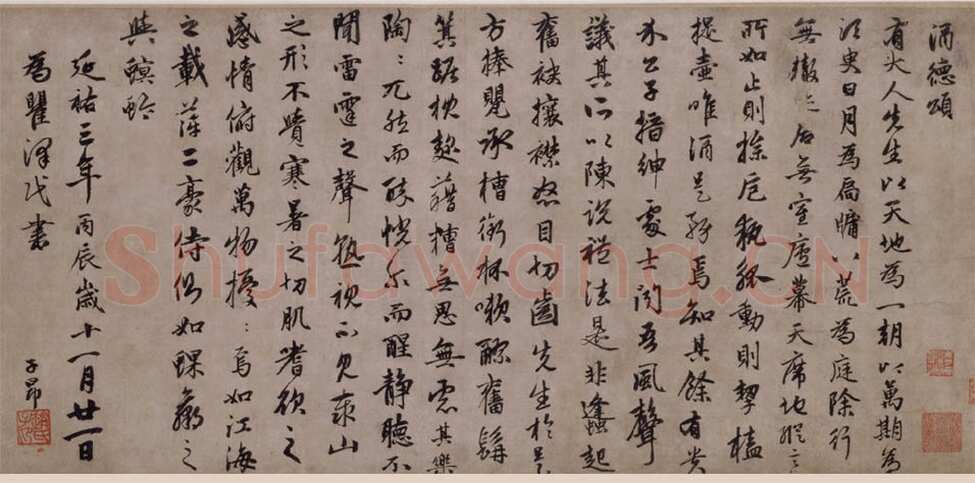 酒德頌
有大人先生以天地為一朝以萬期為
須臾日月為扃牖八荒為庭除行
無轍迹居無室廬幕天席地縱意
所如止則操卮執瓢動則挈榼
提壺唯酒是務焉知其餘有貴
介公子搢紳處士聞吾風聲
議其所以陳說禮法是非蠭起
奮袂攘襟怒目切齒先生於是
方捧甖承槽銜杯漱醪奮髯
箕踞枕麴藉糟無思無慮其樂
陶:兀然而醉恍尔而醒靜聽不
聞雷霆之聲孰視不見泰山
之形不覺寒暑之切肌嗜欲之
感情俯觀萬物擾:焉如江海
之載萍二豪侍側如蜾蠃之
與螟蛉
延祐三年丙辰歲十一月廿一日
為瞿澤民書
子昂
Shufawang.CN